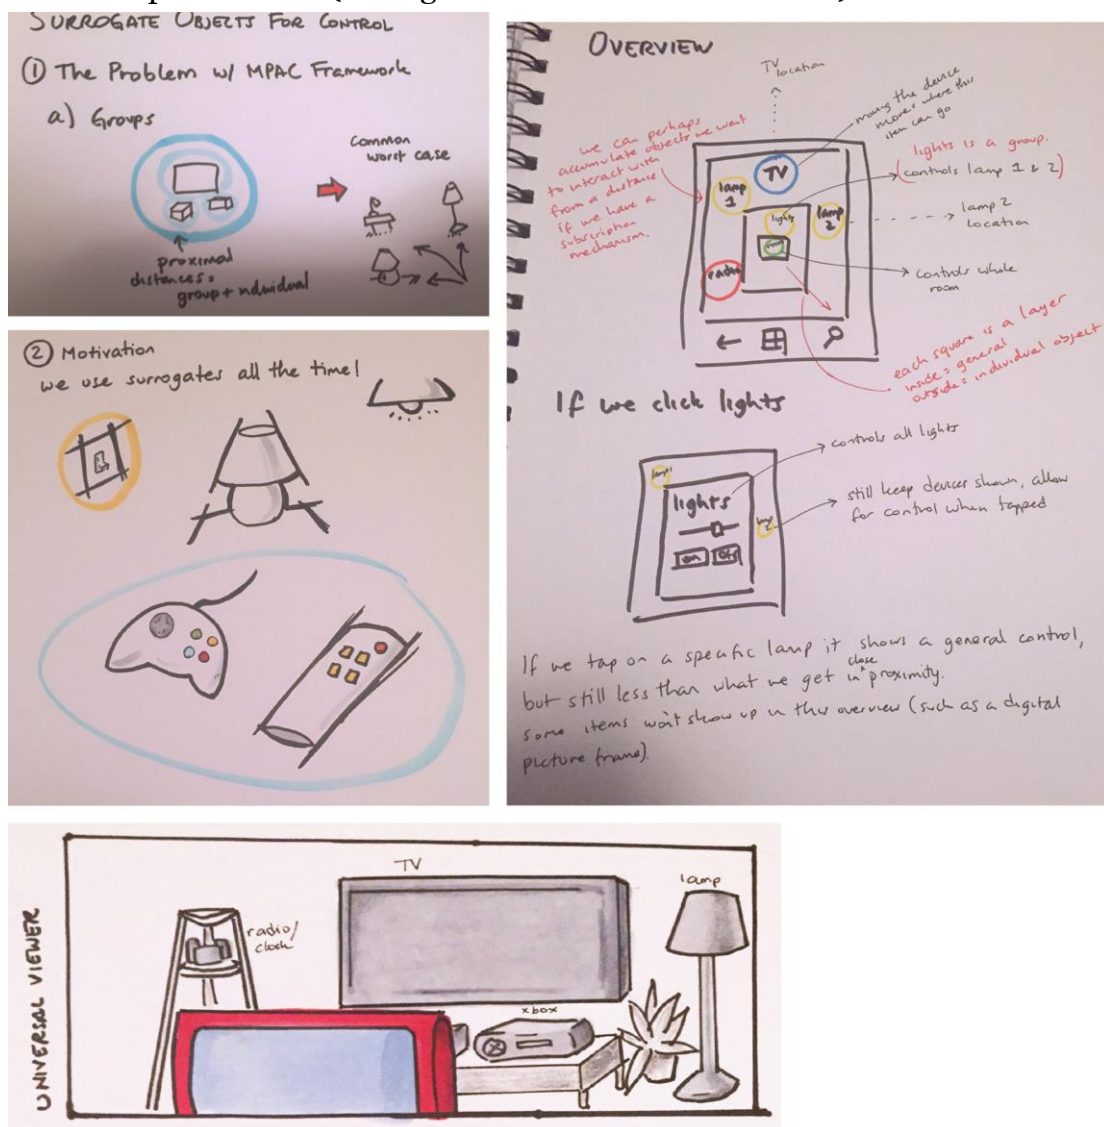 SURROGATE OBJECTS FOR CONTROL
① The Problem w/ MPAC Framework
a) Groups
common
worst case
proximal
distances =
group + individual
② Motivation
we use surrogates all the time!
OVERVIEW
TV
location
moving the device
moves where this
item can go
we can perhaps
accumulate objects we want
to interact with
from a distance
if we have a
subscription
mechanism.
TV
lamp
1
lights
lamp
2
radio
lights is a group.
(controls lamp 1 & 2)
lamp 2
location
controls whole
room
each square is a layer
inside = general
outside = individual object
If we click lights
lamp1
lights
on off
lamp
2
controls all lights
still keep devices shown, allow
for control when tapped
If we tap on a specific lamp it shows a general control,
but still less than what we get in close proximity.
some items won't show up in this overview (such as a digital
picture frame).
UNIVERSAL VIEWER
TV
lamp
radio/
clock
xbox